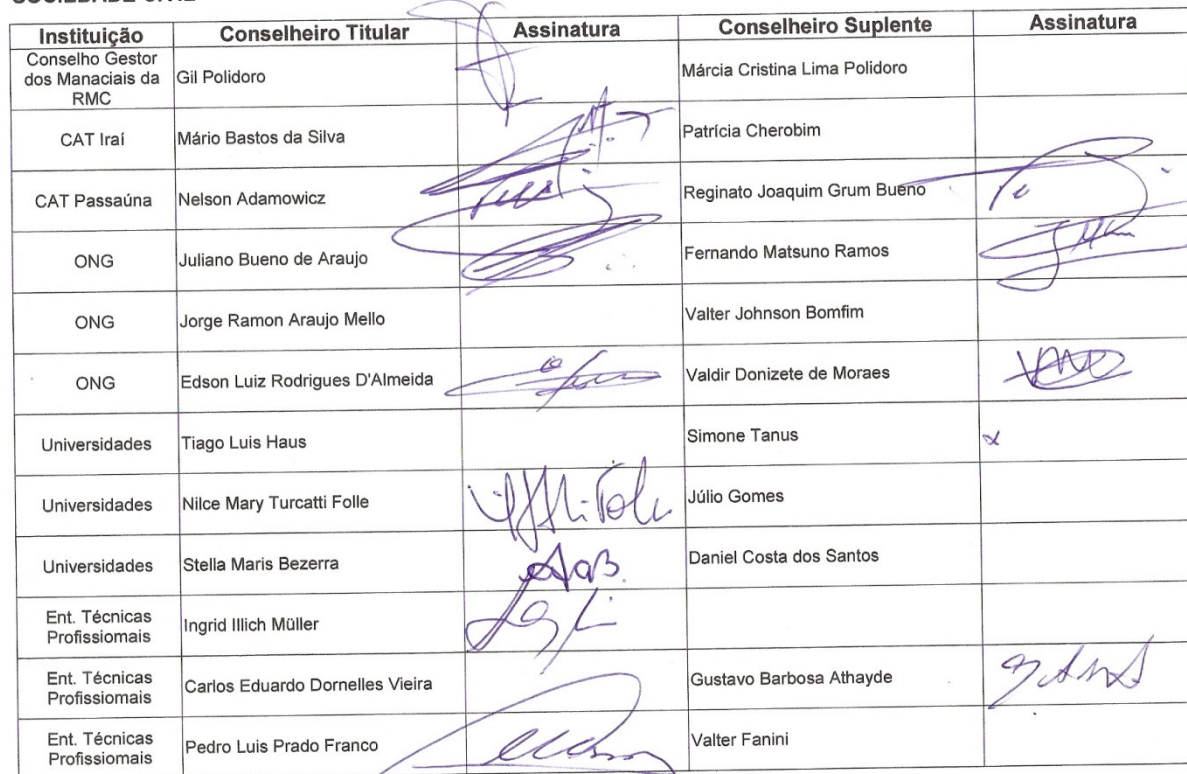 SOCIEDADE CIVIL
Instituição Conselheiro Titular Assinatura Conselheiro Suplente Assinatura
Conselho Gestor
dos Manaciais da
RMC
Gil Polidoro Márcia Cristina Lima Polidoro
CAT Iraí Mário Bastos da Silva Patrícia Cherobim
CAT Passaúna Nelson Adamowicz Reginato Joaquim Grum Bueno
ONG Juliano Bueno de Araujo Fernando Matsuno Ramos
ONG Jorge Ramon Araujo Mello Valter Johnson Bomfim
ONG Edson Luiz Rodrigues D'Almeida Valdir Donizete de Moraes
Universidades Tiago Luis Haus Simone Tanus
Universidades Nilce Mary Turcatti Folle Júlio Gomes
Universidades Stella Maris Bezerra Daniel Costa dos Santos
Ent. Técnicas
Profissiomais
Ingrid Illich Müller
Ent. Técnicas
Profissiomais
Carlos Eduardo Dornelles Vieira Gustavo Barbosa Athayde
Ent. Técnicas
Profissiomais
Pedro Luis Prado Franco Valter Fanini